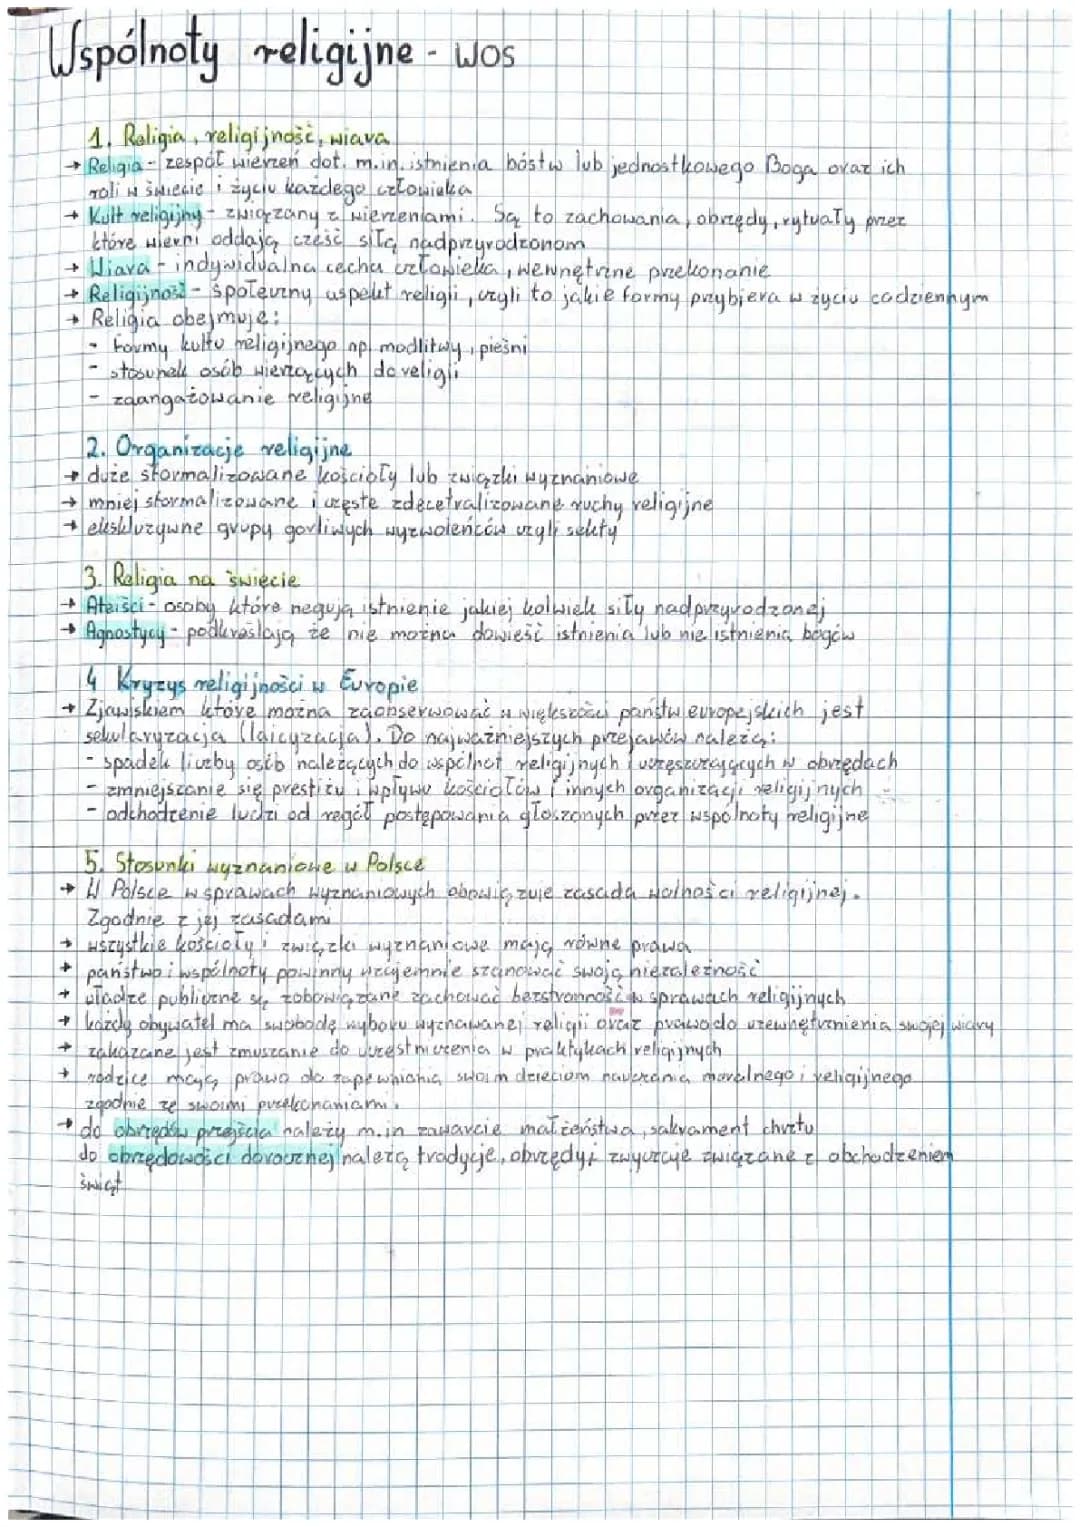 Wspólnoty religijne - WOS
1. Religia, religijność, wiara
→ Religia - zespół wierzeń dot. m.in. istnienia bóstw lub jednostkowego Boga oraz ich
roli w świecie i życiu każdego człowieka
→ Kult religijny - związany z wierzeniami. Są to zachowania, obrzędy, rytuały przez
które wierni oddają cześć siłą nadprzyrodzonom
→ Wiara - indywidualna cecha człowieka, wewnętrzne przekonanie
→ Religijność - społeczny aspekt religii, czyli to jakie formy przybiera w życiu codziennym
→ Religia obejmuje:
- formy kultu religijnego np. modlitwy, pieśni
- stosunek osób wierzących do religii
- zaangażowanie religijne
2. Organizacje religijne
→ duże sformalizowane kościoły lub związki wyznaniowe
→ mniej sformalizowane i częste zdecetralizowane ruchy religijne
→ ekskluzywne grupy gorliwych wyzwoleńców czyli sekty
3. Religia na świecie
→ Ateiści - osoby które negują istnienie jakiej kolwiek siły nadprzyrodzonej
→ Agnostycy - podkraślają że nie można dowieść istnienia lub nie istnienia bogów
4 Kryzys religijności w Europie
→ Zjawiskiem które można zaonserwować w większości państw europejskich jest
sekularyzacja (laicyzacja). Do najważniejszych przejawów należą:
- spadek liczby osób należących do wspólnot religijnych i uczęszczających w obrzędach
- zmniejszanie się prestiżu i wpływu kościołów i innych organizacji religijnych
- odchodzenie ludzi od reguł postępowania głoszonych przez wspólnoty religijne
5. Stosunki wyznaniowe w Polsce
→ W Polsce w sprawach wyznaniowych obowiązuje zasada wolności religijnej.
Zgodnie z jej zasadami
→ wszystkie kościoły i związki wyznaniowe mają równe prawa
→ państwo i wspólnoty powinny wzajemnie szanować swoją niezależność
→ władze publiczne są zobowiązane zachować bezstronność w sprawach religijnych
→ każdy obywatel ma swobodę wyboru wyznawanej religii oraz prawo do uzewnętrznienia swojej wiary
→ zakazane jest zmuszanie do uczestniczenia w praktykach religijnych
→ rodzice mają prawo do zapewniania swoim dzieciom nauczania moralnego i religijnego
zgodnie ze swoimi przekonaniami.
→ do obrzędów przejścia należy m.in zawarcie małżeństwa, sakrament chrztu
do obrzędowości dorocznej należą tradycje, obrzędy i zwyczaje związane z obchodzeniem
świąt